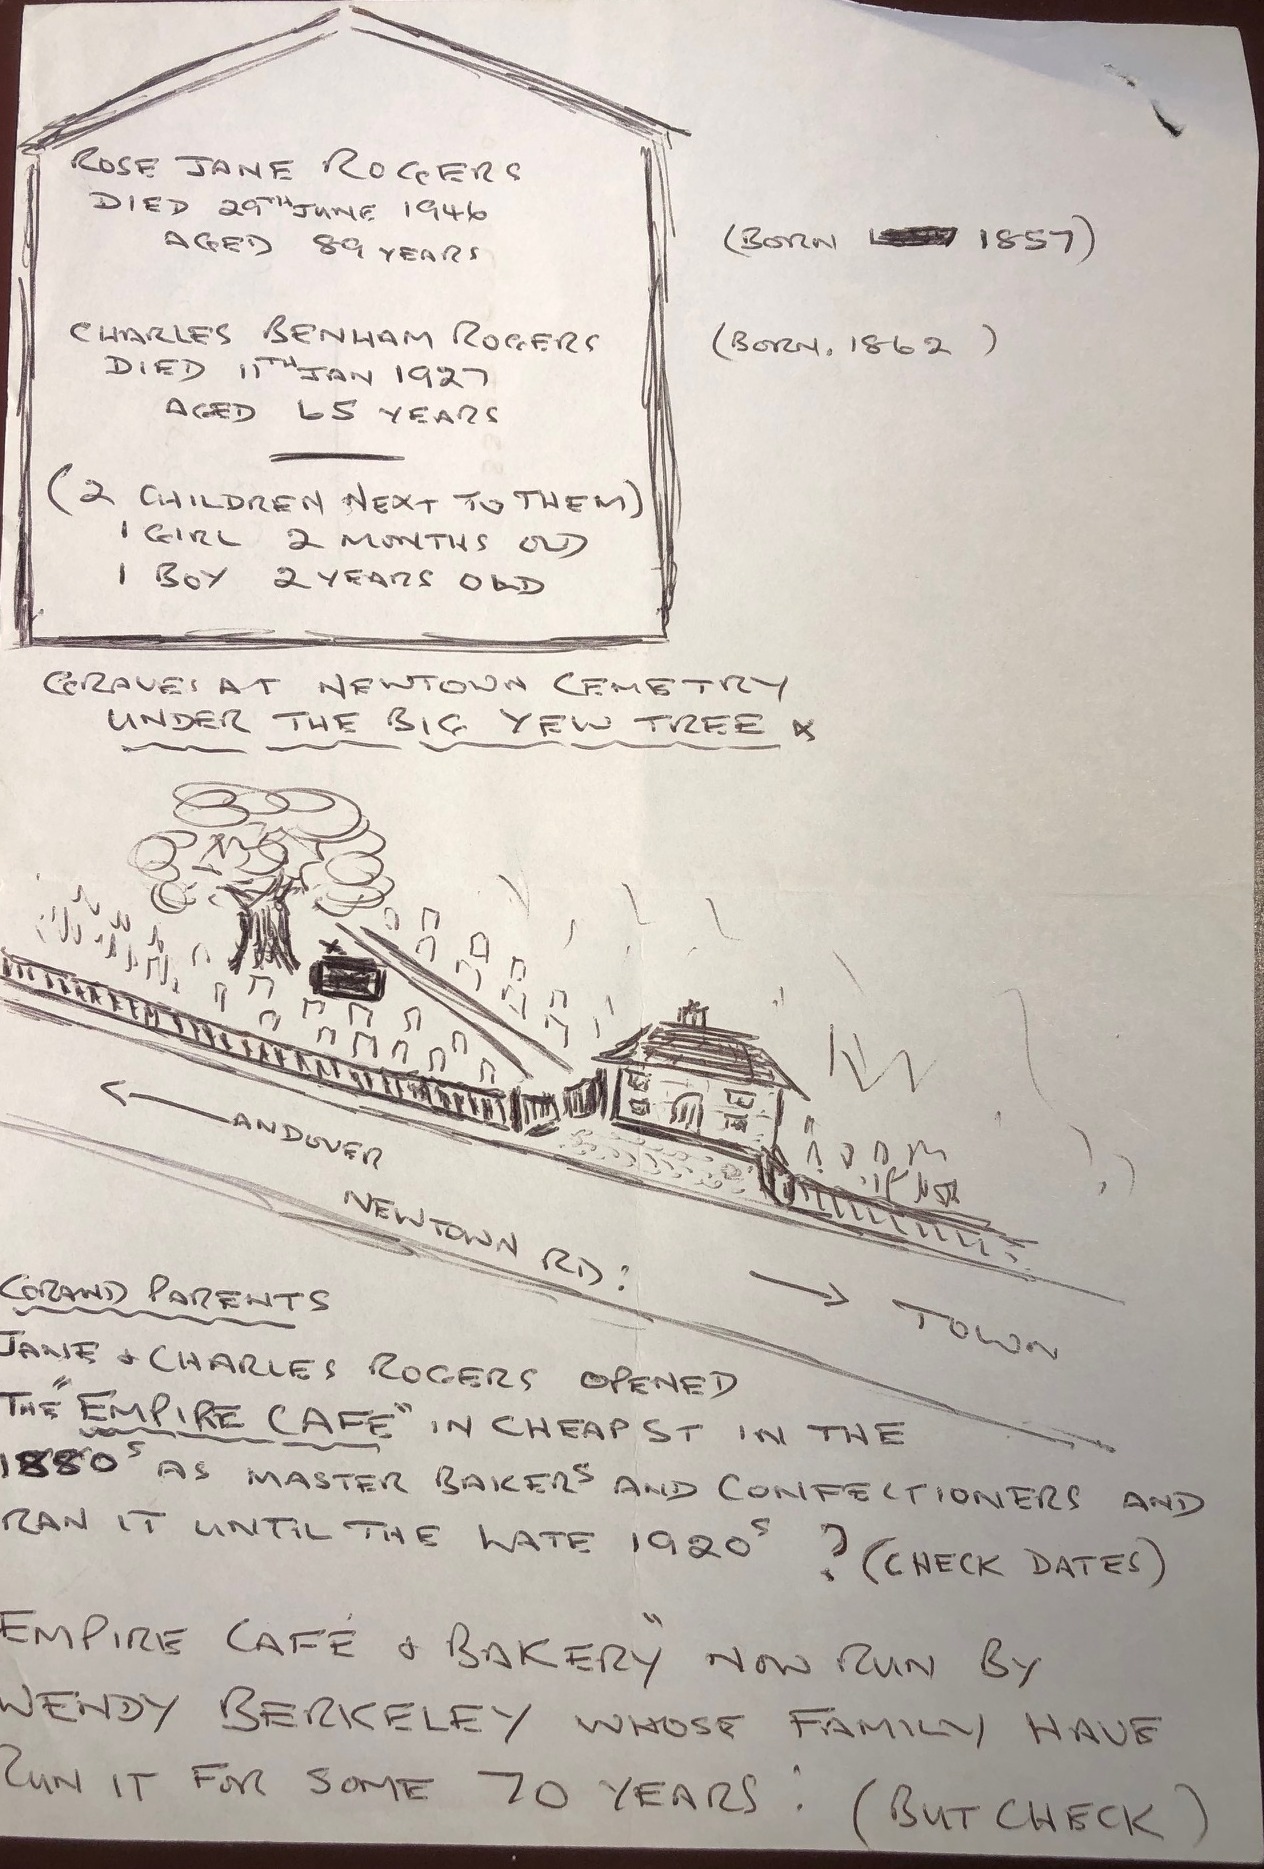 ROSE JANE ROGERS
DIED 29TH JUNE 1946
AGED 89 YEARS
(BORN 1857)
CHARLES BENHAM ROGERS
DIED 11TH JAN 1927
AGED 65 YEARS
(BORN. 1862)
(2 CHILDREN NEXT TO THEM)
1 GIRL 2 MONTHS OLD
1 BOY 2 YEARS OLD
GRAVES AT NEWTOWN CEMETRY
UNDER THE BIG YEW TREE X
X
← ANDOVER
NEWTOWN RD:
→ TOWN
GRAND PARENTS
JANE & CHARLES ROGERS OPENED
THE "EMPIRE CAFE" IN CHEAP ST IN THE
1880S AS MASTER BAKERS AND CONFECTIONERS AND
RAN IT UNTIL THE LATE 1920S ? (CHECK DATES)
EMPIRE CAFÉ & BAKERY" NOW RUN BY
WENDY BERKELEY WHOSE FAMILY HAVE
RUN IT FOR SOME 70 YEARS: (BUT CHECK)